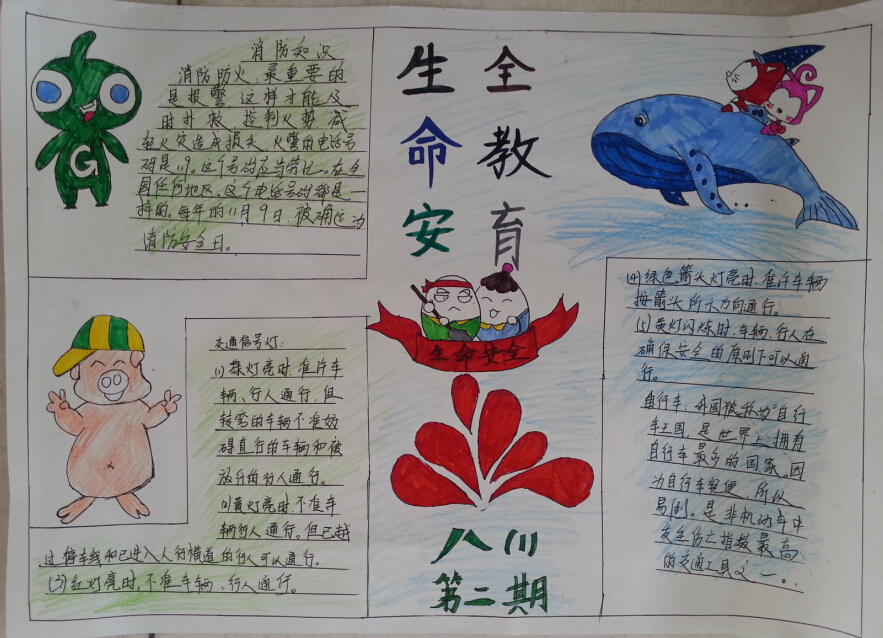 消防知识
消防防火,最重要的
是报警,这样才能及
时扑救,控制火势,减
轻火灾造成损失,火警的电话号
码是119。这个号码应当劳记。在全
国任何地区,这个电话号码都是一
样的。每年的11月9日,被确定为
消防安全日。
G
交通信号灯:
(1)绿灯亮时,准许车
辆、行人通行,但
转弯的车辆不准妨
碍直行的车辆和被
放行的行人通行。
(2)黄灯亮时,不准车
辆行人通行。但已越
过停车线和已进入人行横道的行人可以通行。
(3)红灯亮时,不准车辆、行人通行。
生命安全教育
生命安全
八(1)
第二期
(4)绿色箭头灯亮时,准许车辆
按箭头所示方向通行。
(5)黄灯闪烁时,车辆、行人在
确保安全的原则下可以通
行。
自行车,我国被称为"自行
车王国,是世界上拥有
自行车最多的国家。因
为自行车轻便,所以
易倒。是非机动车中
发生伤亡指数最高
的交通工具之一。